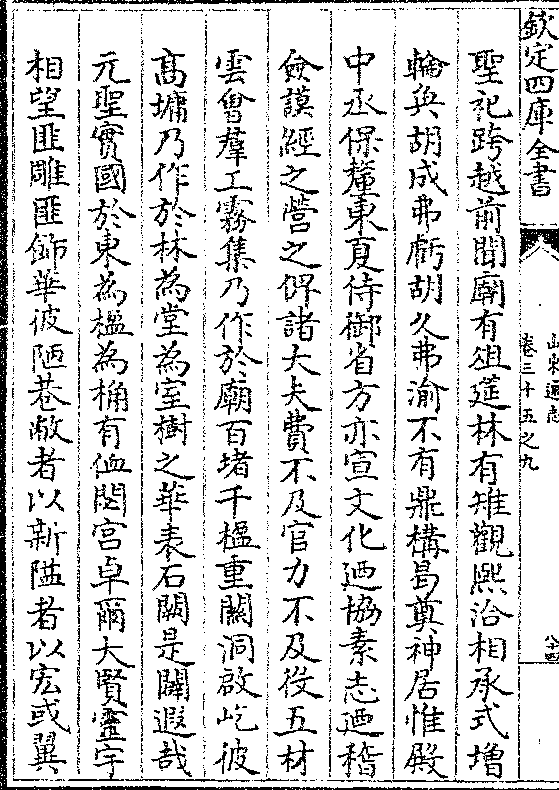 欽定四庫全書
山東通志
卷三十五之九
聖祀跨越前聞廟有俎筵林有雉觀熙洽相承式增
輪奐胡成弗虧胡久弗渝不有鼎構曷奠神居惟殿
中丞保釐東夏侍御省方亦宣文化迺協素志迺稽
僉謨經之營之俾諸大夫費不及官力不及役五材
雲會羣工霧集乃作於廟百堵千楹重闕洞啟屹彼
髙墉乃作於林為堂為室樹之華表石闕是闢遐哉
元聖實國於東為楹為桷有侐閟宫卓爾大賢靈宇
相望匪雕匪飾華彼陋巷敝者以新隘者以宏或翼